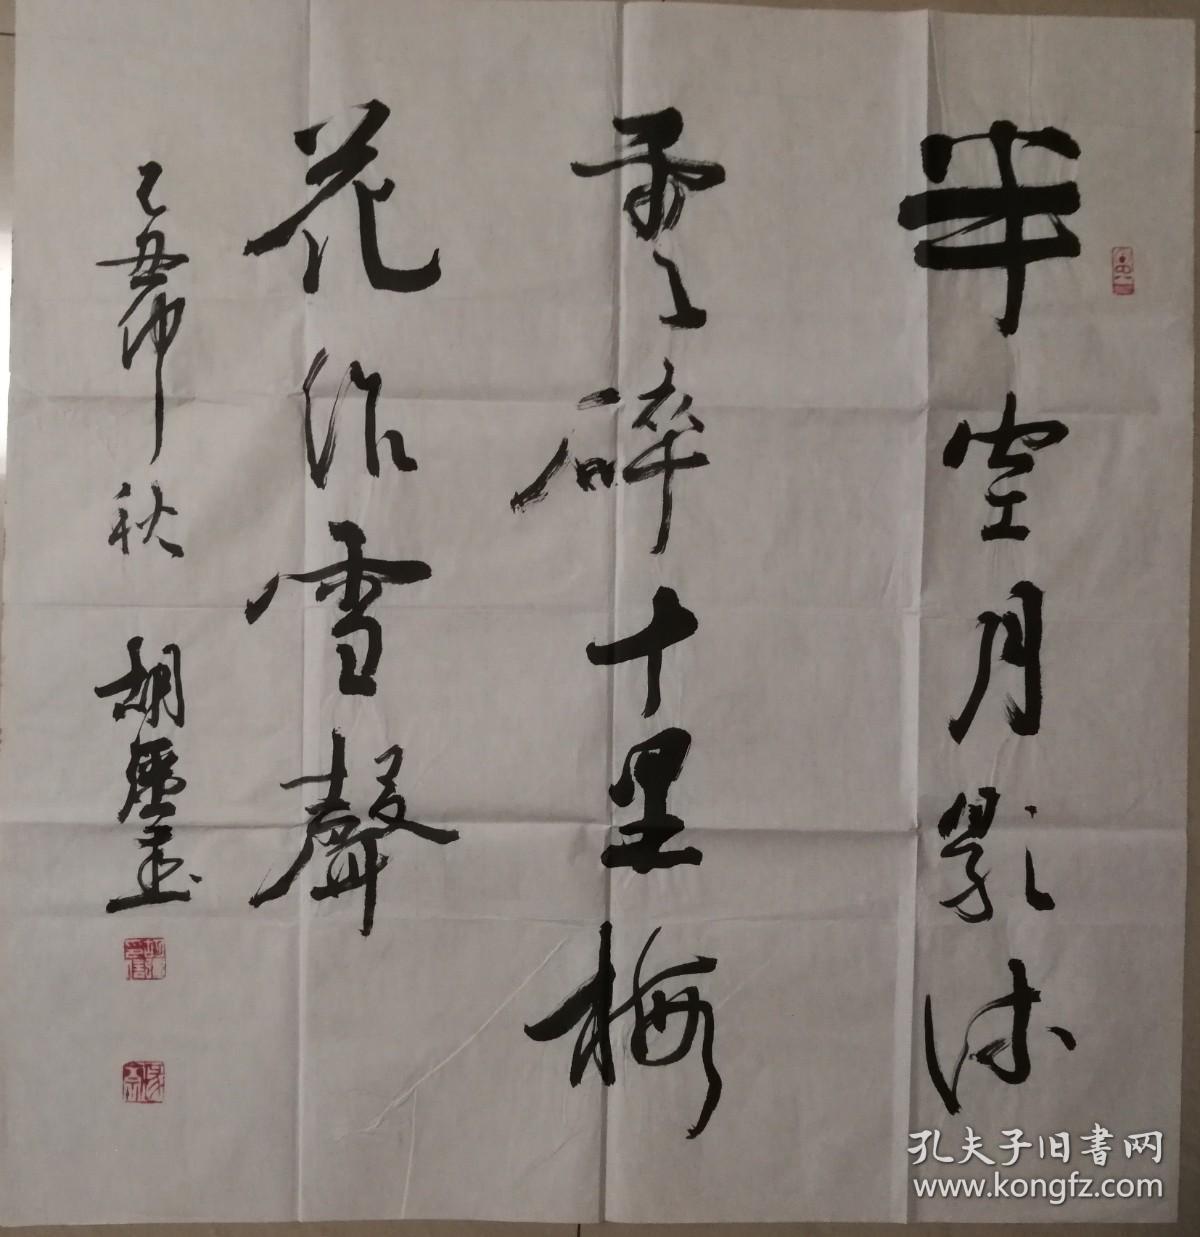 半空月影流
雲碎十里梅
花作雪聲
己丑仲秋 胡
孔夫子旧書网
www.kongfz.com